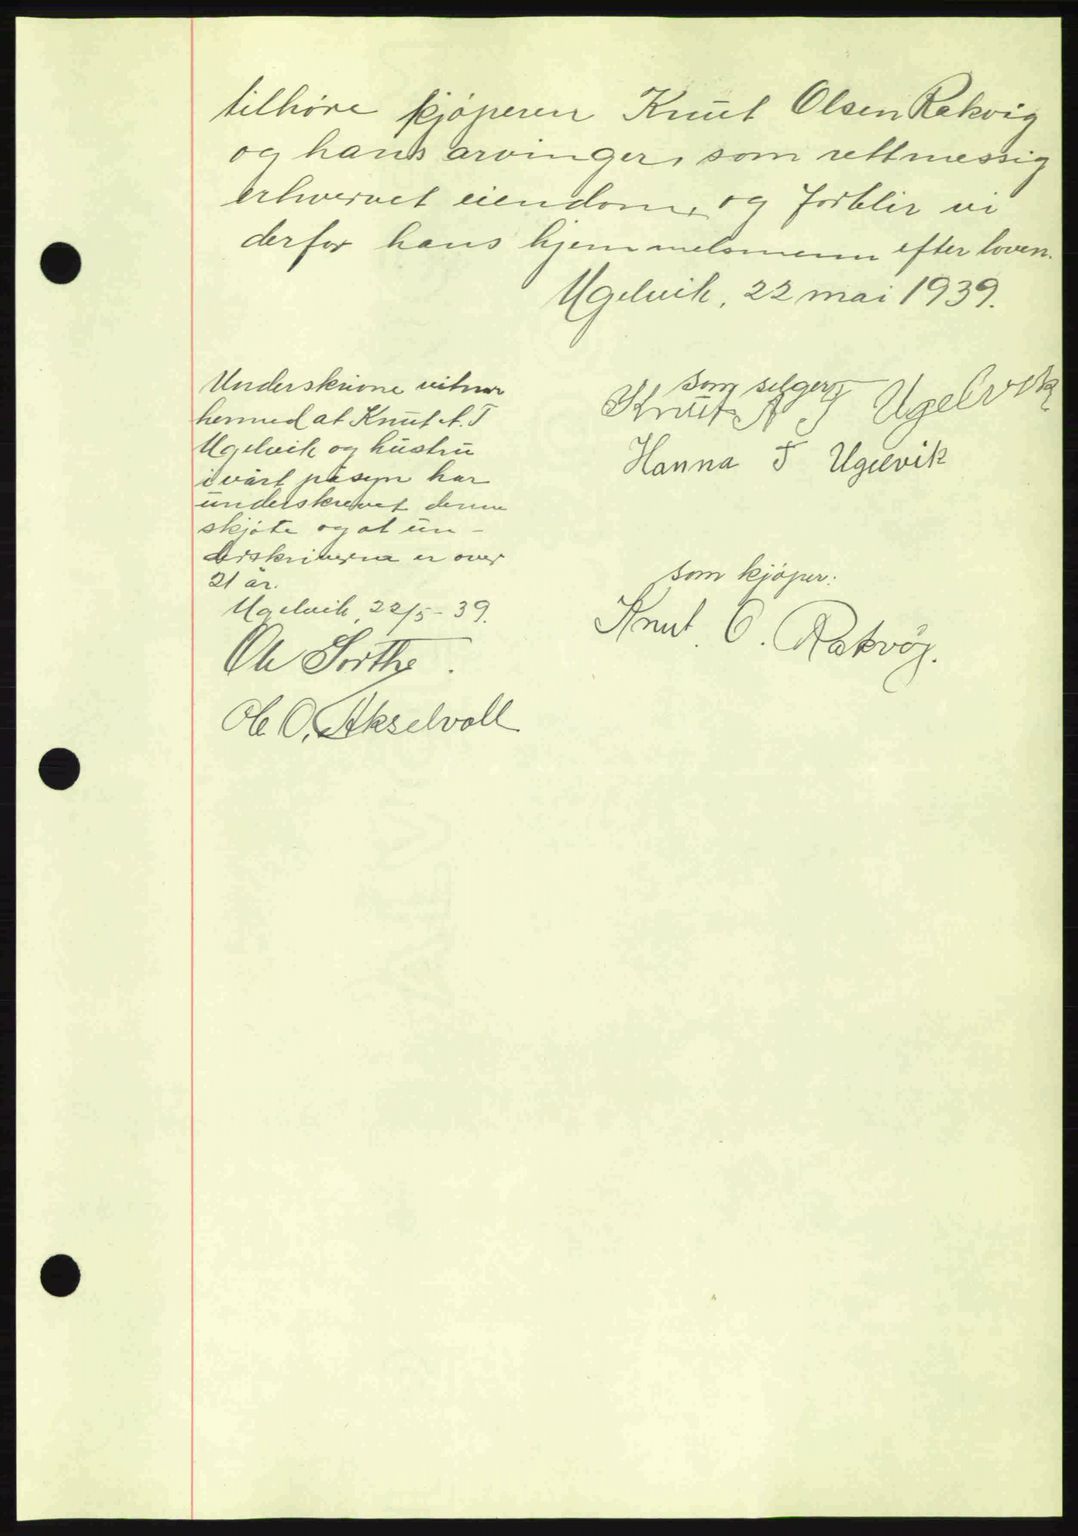 tilhøre kjøperen Knut Olsen Rakvåg
og hans arvinger, som rettmessig
erhvervet eiendom, og forblir vi
derfor hans hjemmelsmenn efter loven.
Ugelvik, 22 mai 1939.
som selgere
Knut A T Ugelvik
Hanna T Ugelvik
Underskrivne vitner
hermed at Knut A. T
Ugelvik og hustru
i vårt påsyn har
underskrevet denne
skjøte og at un-
derskriverne er over
21 år.
Ugelvik, 22/5-39.
Ole Sorthe.
Ole O. Akselvoll
som kjøper:
Knut. O. Rakvåg.